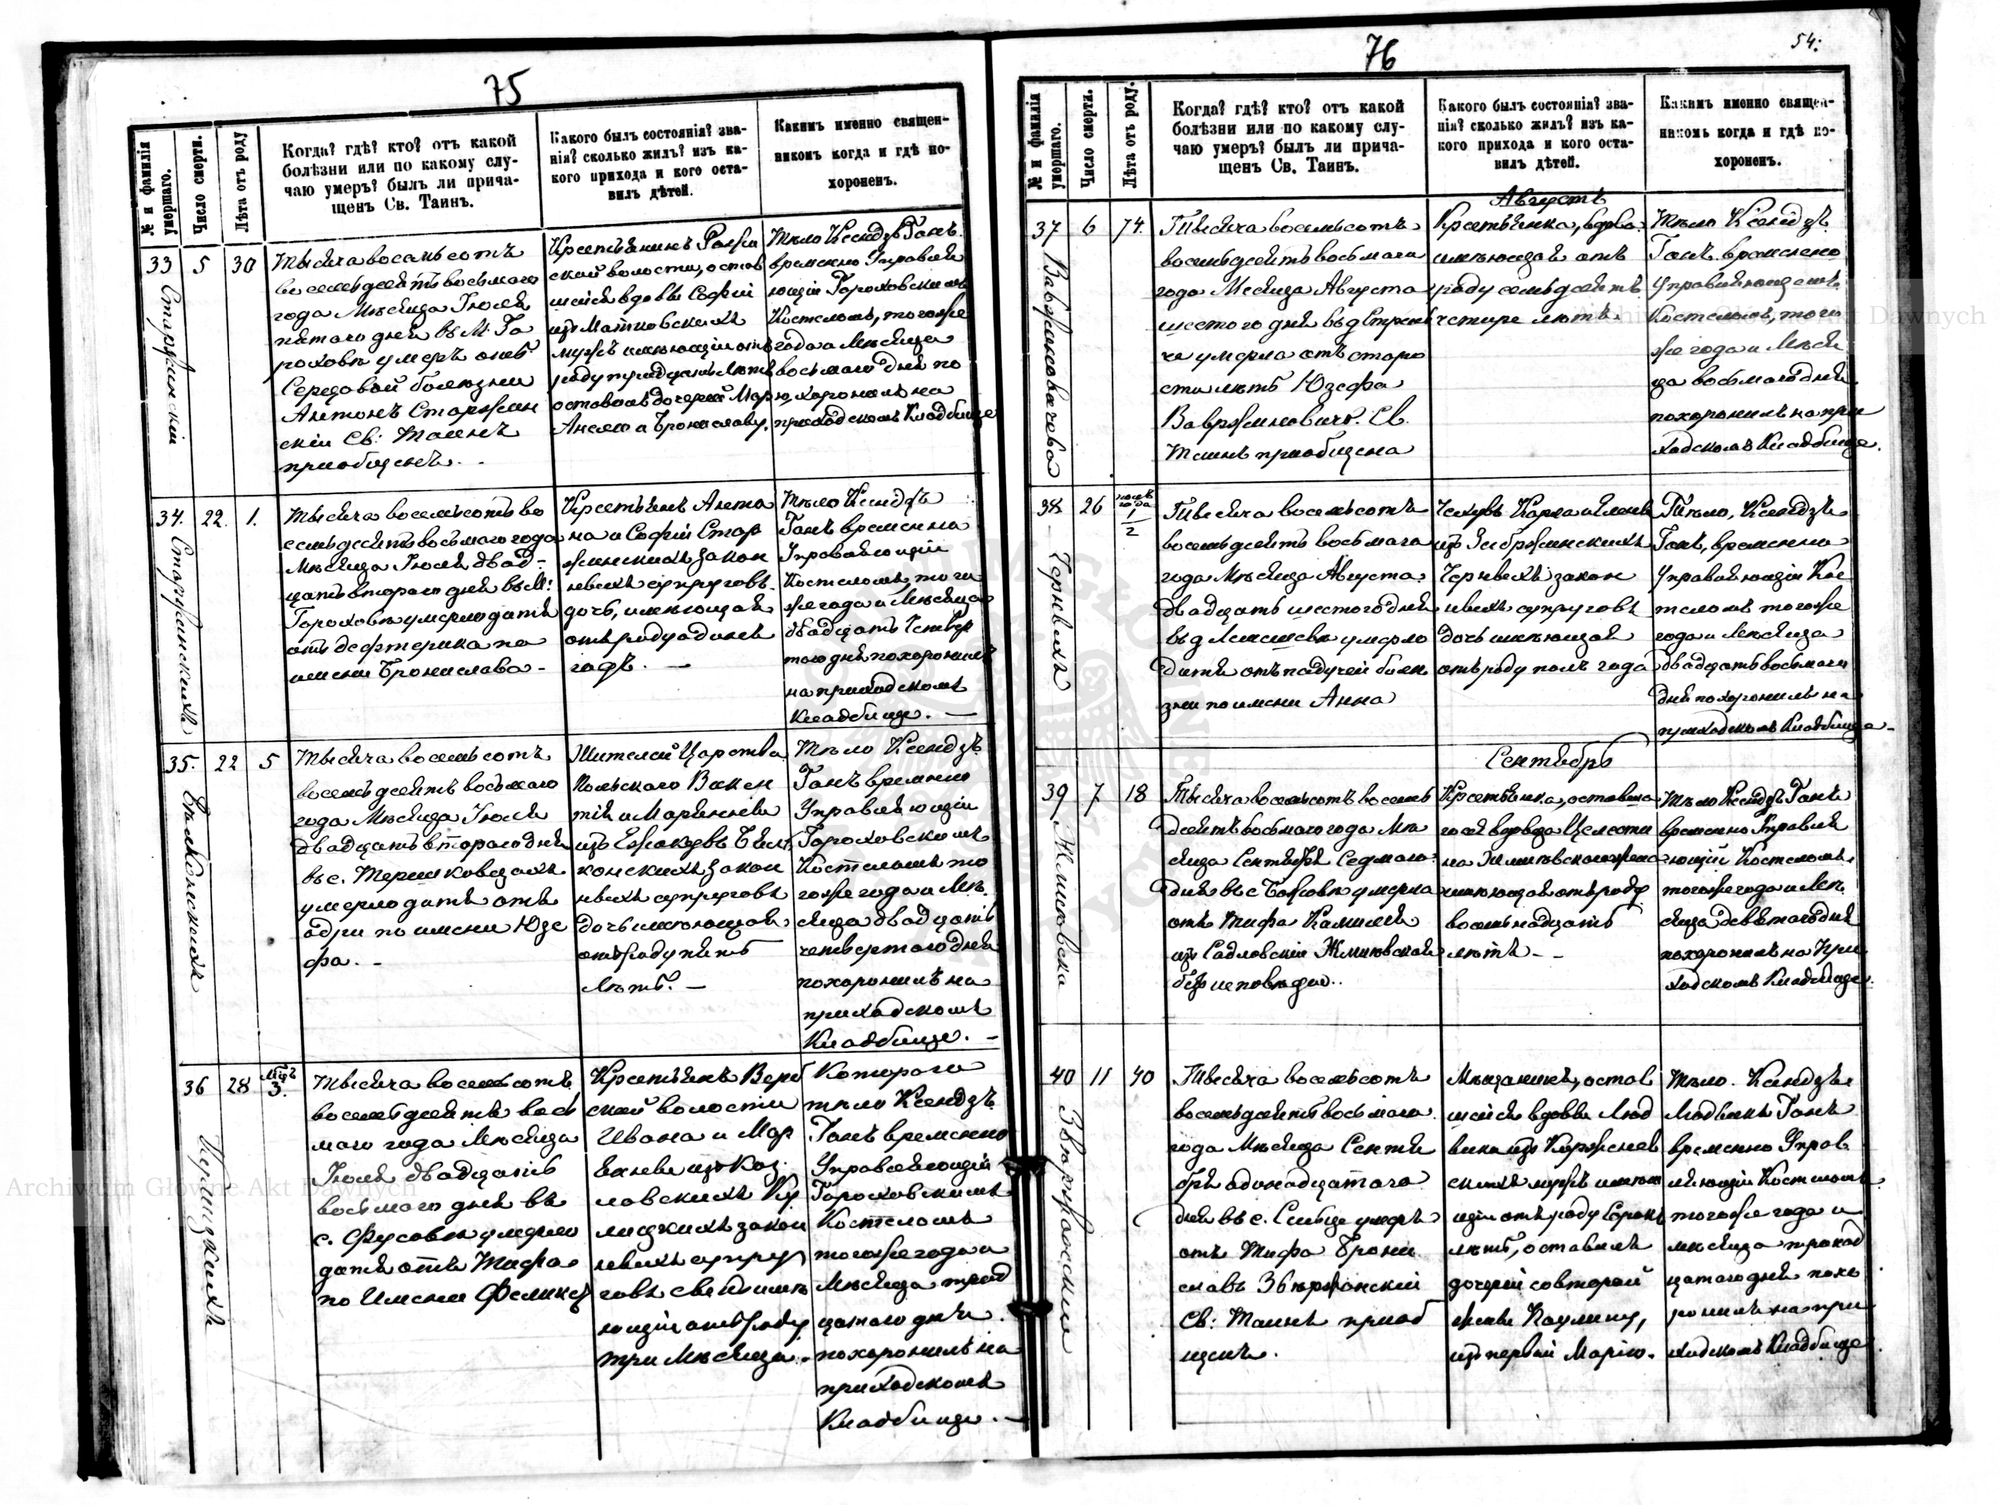 75
№ и фамилія умершаго.
Число смерти.
Лѣта отъ роду
Когда? гдѣ? кто? отъ какой
болѣзни или по какому слу-
чаю умеръ? былъ ли прича-
щенъ Св. Таинъ.
Какого былъ состоянія? зва-
нія? сколько жилъ? изъ ка-
кого прихода и кого оста-
вилъ дѣтей.
Какимъ именно священ-
никомъ когда и гдѣ по-
хороненъ.
33
5
30
Тысяча восемьсотъ
восемьдесятъ восьмаго
года Мѣсяца Іюля
пятого дня въ М. Го
роховѣ умеръ отъ
Антонъ Старжин
скій Св: Таинъ
пріобщенъ.
Крестьянинъ
ской волости, остав
шійся вдовы Софіи
изъ
мужъ имѣющій отъ
роду тридцать лѣтъ
оставилъ дочерей Марію,
и Брониславу.
Тѣло Ксендзъ Ганъ
временно Управля
ющій Гороховскимъ
Костеломъ, тогоже
года и Мѣсяца
восьмаго дня по
хоронилъ на
приходскомъ Кладбище
34.
22.
1.
Тысяча восемьсотъ во
семьдесятъ восьмого года
Мѣсяца Іюля двад-
цать втораго дня въ М:
Гороховѣ умерло дитя
отъ дефтерита по
имени Бронислава -
Крестьянъ Анто
на и Софіи Стар
жинскихъ закон
ныхъ супруговъ
дочь, имѣющая
отъ роду одинъ
годъ. —
Тѣло Ксендзъ
Ганъ временно
Управляющій
Костеломъ, того
же года и Мѣсяца
двадцать четвер
таго дня похоронилъ
на приходскомъ
Кладбище. —
35.
22
5
Тысяча восемьсотъ
восемьдесятъ восьмаго
года Мѣсяца Іюля
двадцать втораго дня
въ с. Терешковцахъ
умерло дитя отъ
одри по имени Юзе
фа. -
Жителей Царства
Польскаго Викен
тія и Маріянны
законныхъ супруговъ
дочь имѣющая
отъ роду пять
лѣтъ. —
Тѣло Ксендзъ
Ганъ временно
Управляющій
Гороховскимъ
Костеломъ то
гоже года и Мѣ
сяца двадцать
четвертаго дня
похоронилъ на
приходскомъ
Кладбище. —
36
28
3.
Тысяча восемьсотъ
восемьдесятъ вось
маго года Мѣсяца
Іюля двадцать
восьмаго дня въ
с. умерло
дитя отъ Тифа
по Имени Феликсъ
Крестьянъ Верб
ской волости
Ивана и Мар
изъ Коз
ловскихъ
закон
ныхъ супру
говъ сынъ имѣ
ющій отъ роду
три Мѣсяца.
Котораго
тѣло Ксендзъ
Ганъ временно
Управляющій
Гороховскимъ
Костеломъ
тогоже года и
Мѣсяца трид
цатаго дня
похоронилъ на
приходскомъ
Кладбище. —
76
54:
№ и фамилія умершаго.
Число смерти.
Лѣта отъ роду.
Когда? гдѣ? кто? отъ какой
болѣзни или по какому слу-
чаю умеръ? былъ ли прича-
щенъ Св. Таинъ.
Какого былъ состоянія? зва-
нія? сколько жилъ? изъ ка-
кого прихода и кого оста-
вилъ дѣтей.
Какимъ именно священ-
никомъ когда и гдѣ по-
хороненъ.
Августъ
37
6
74.
Тысяча восемьсотъ
восемьдесятъ восьмаго
года Месяца Августа
шестого дня въ д.
умерла отъ старо
сти лѣтъ Юзефа
Св.
Таинъ пріобщена
Крестьянка, вдова
имѣющая отъ
роду семьдесятъ
четыре лѣтъ
Тѣло Ксендзъ
Ганъ временно
Управляющій
Костеломъ, того
же года и Мѣся
ца восьмаго дня
похоронилъ на при
ходскомъ Кладбище.
38
26
1/2
Тысяча восемьсотъ
восемьдесятъ восьмаго
года Мѣсяца Августа
двадцать шестого дня
въ д. умерло
дитя отъ падучей болѣ
зни по имени Анна
Чеховъ Карла и
законныхъ супруговъ
дочь имѣющая
отъ роду полъ года
Тѣло, Ксендзъ
Ганъ, временно
Управляющій Кос
теломъ тогоже
года и Мѣсяца
двадцать восьмаго
дня похоронилъ на
приходскомъ Кладбище -
Сентябрь
39
7
18
Жмиковска
Тысяча восемьсотъ восемь
десятъ восьмого года Мѣ
сяца Сентября Седмаго
дня въ с. умерла
отъ Тифа Камилія
Жмиковская
без исповѣди.
Крестьянка, оставша
гося вдовца Целести
на Жмиковскаго жена
имѣющая отъ роду
восемьнадцать
лѣтъ - -
Тѣло Ксендзъ Ганъ
временно Управля
ющій Костеломъ
тогоже года и Мѣ
сяца девятаго дня
похоронилъ на При
ходскомъ Кладбище.
40
11
40
Тысяча восемьсотъ
восемьдесятъ восьмаго
года Мѣсяца Сентя
бря одинадцатаго
дня въ с. умеръ
отъ Тифа Брони
славъ
Св: Таинъ пріоб
щенъ.
Мѣщанинъ, остав
шійся вдовы Люд
вики изъ
мужъ имѣю
щій отъ роду Сорокъ
лѣтъ, оставилъ
дочерей со второй
Паулину,
изъ первой Марію.
Тѣло Ксендзъ
Людвикъ Ганъ
временно Управ
ляющій Костеломъ
тогоже года и
мѣсяца тринад
цатаго дня похо
ронилъ на при
ходскомъ Кладбище
Archiwum Główne Akt Dawnych